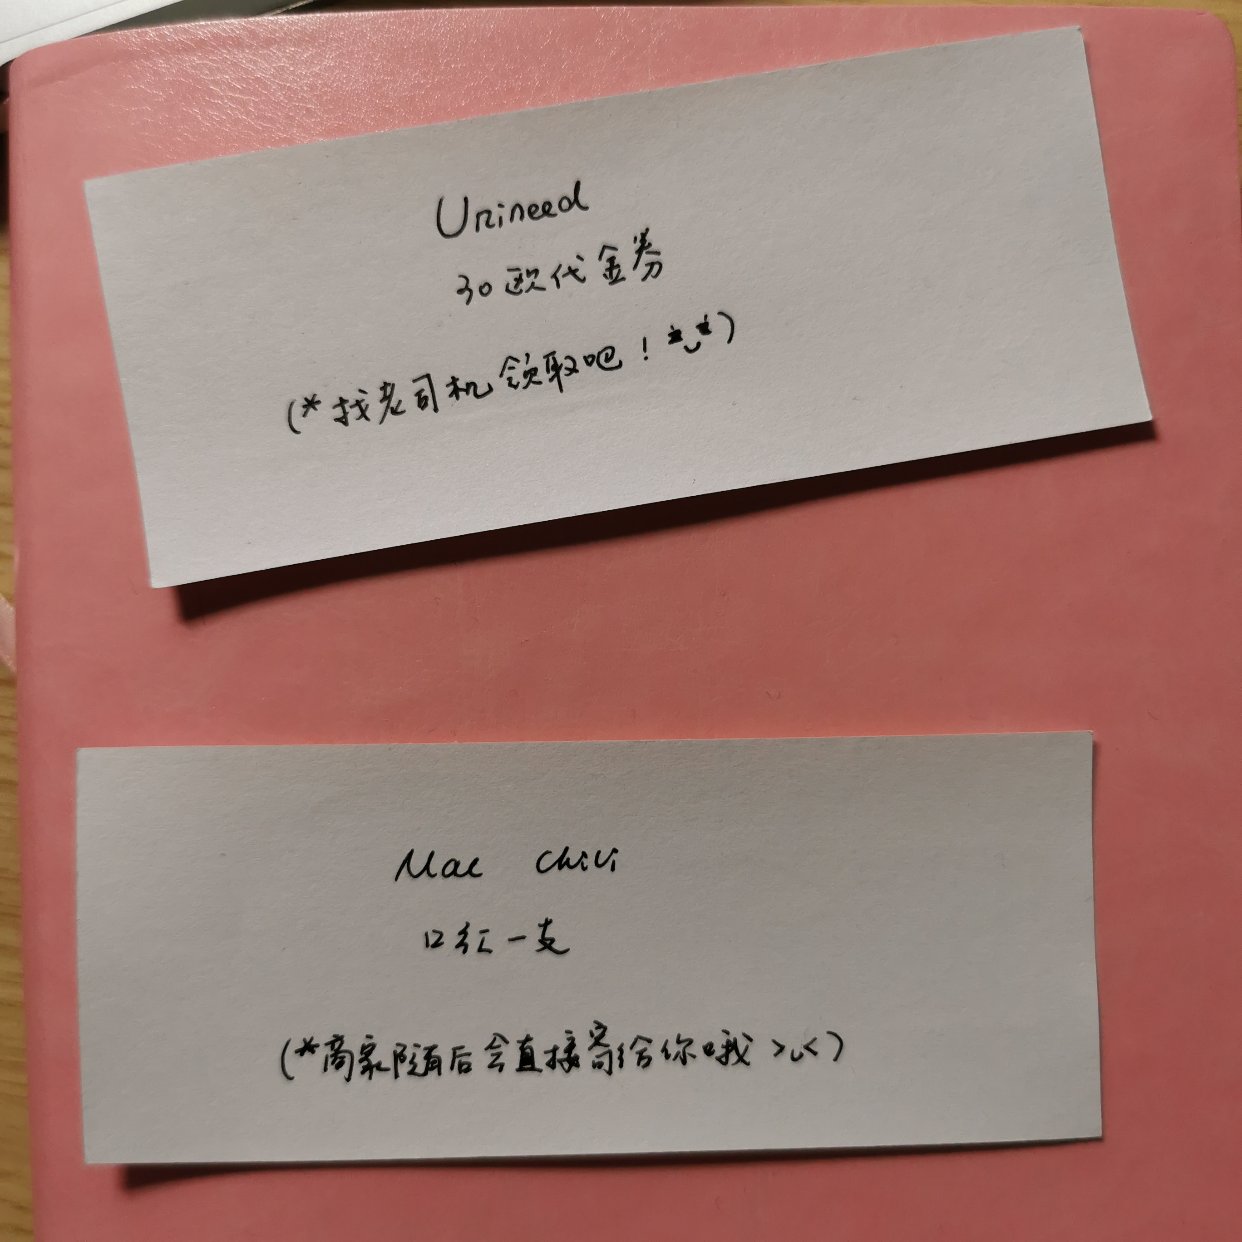 Unineed
30欧代金券
(*找老司机领取吧！*ᴗ*)
Mac Chili
口红一支
(*商家随后会直接寄给你哦 >ᴗ<)